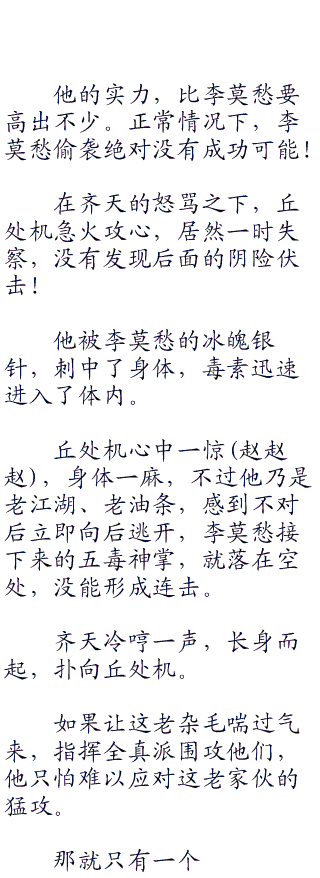 他的实力，比李莫愁要
高出不少。正常情况下，李
莫愁偷袭绝对没有成功可能！
在齐天的怒骂之下，丘
处机急火攻心，居然一时失
察，没有发现后面的阴险伏
击！
他被李莫愁的冰魄银
针，刺中了身体，毒素迅速
进入了体内。
丘处机心中一惊(赵赵
赵)，身体一麻，不过他乃是
老江湖、老油条，感到不对
后立即向后逃开，李莫愁接
下来的五毒神掌，就落在空
处，没能形成连击。
齐天冷哼一声，长身而
起，扑向丘处机。
如果让这老杂毛喘过气
来，指挥全真派围攻他们，
他只怕难以应对这老家伙的
猛攻。
那就只有一个